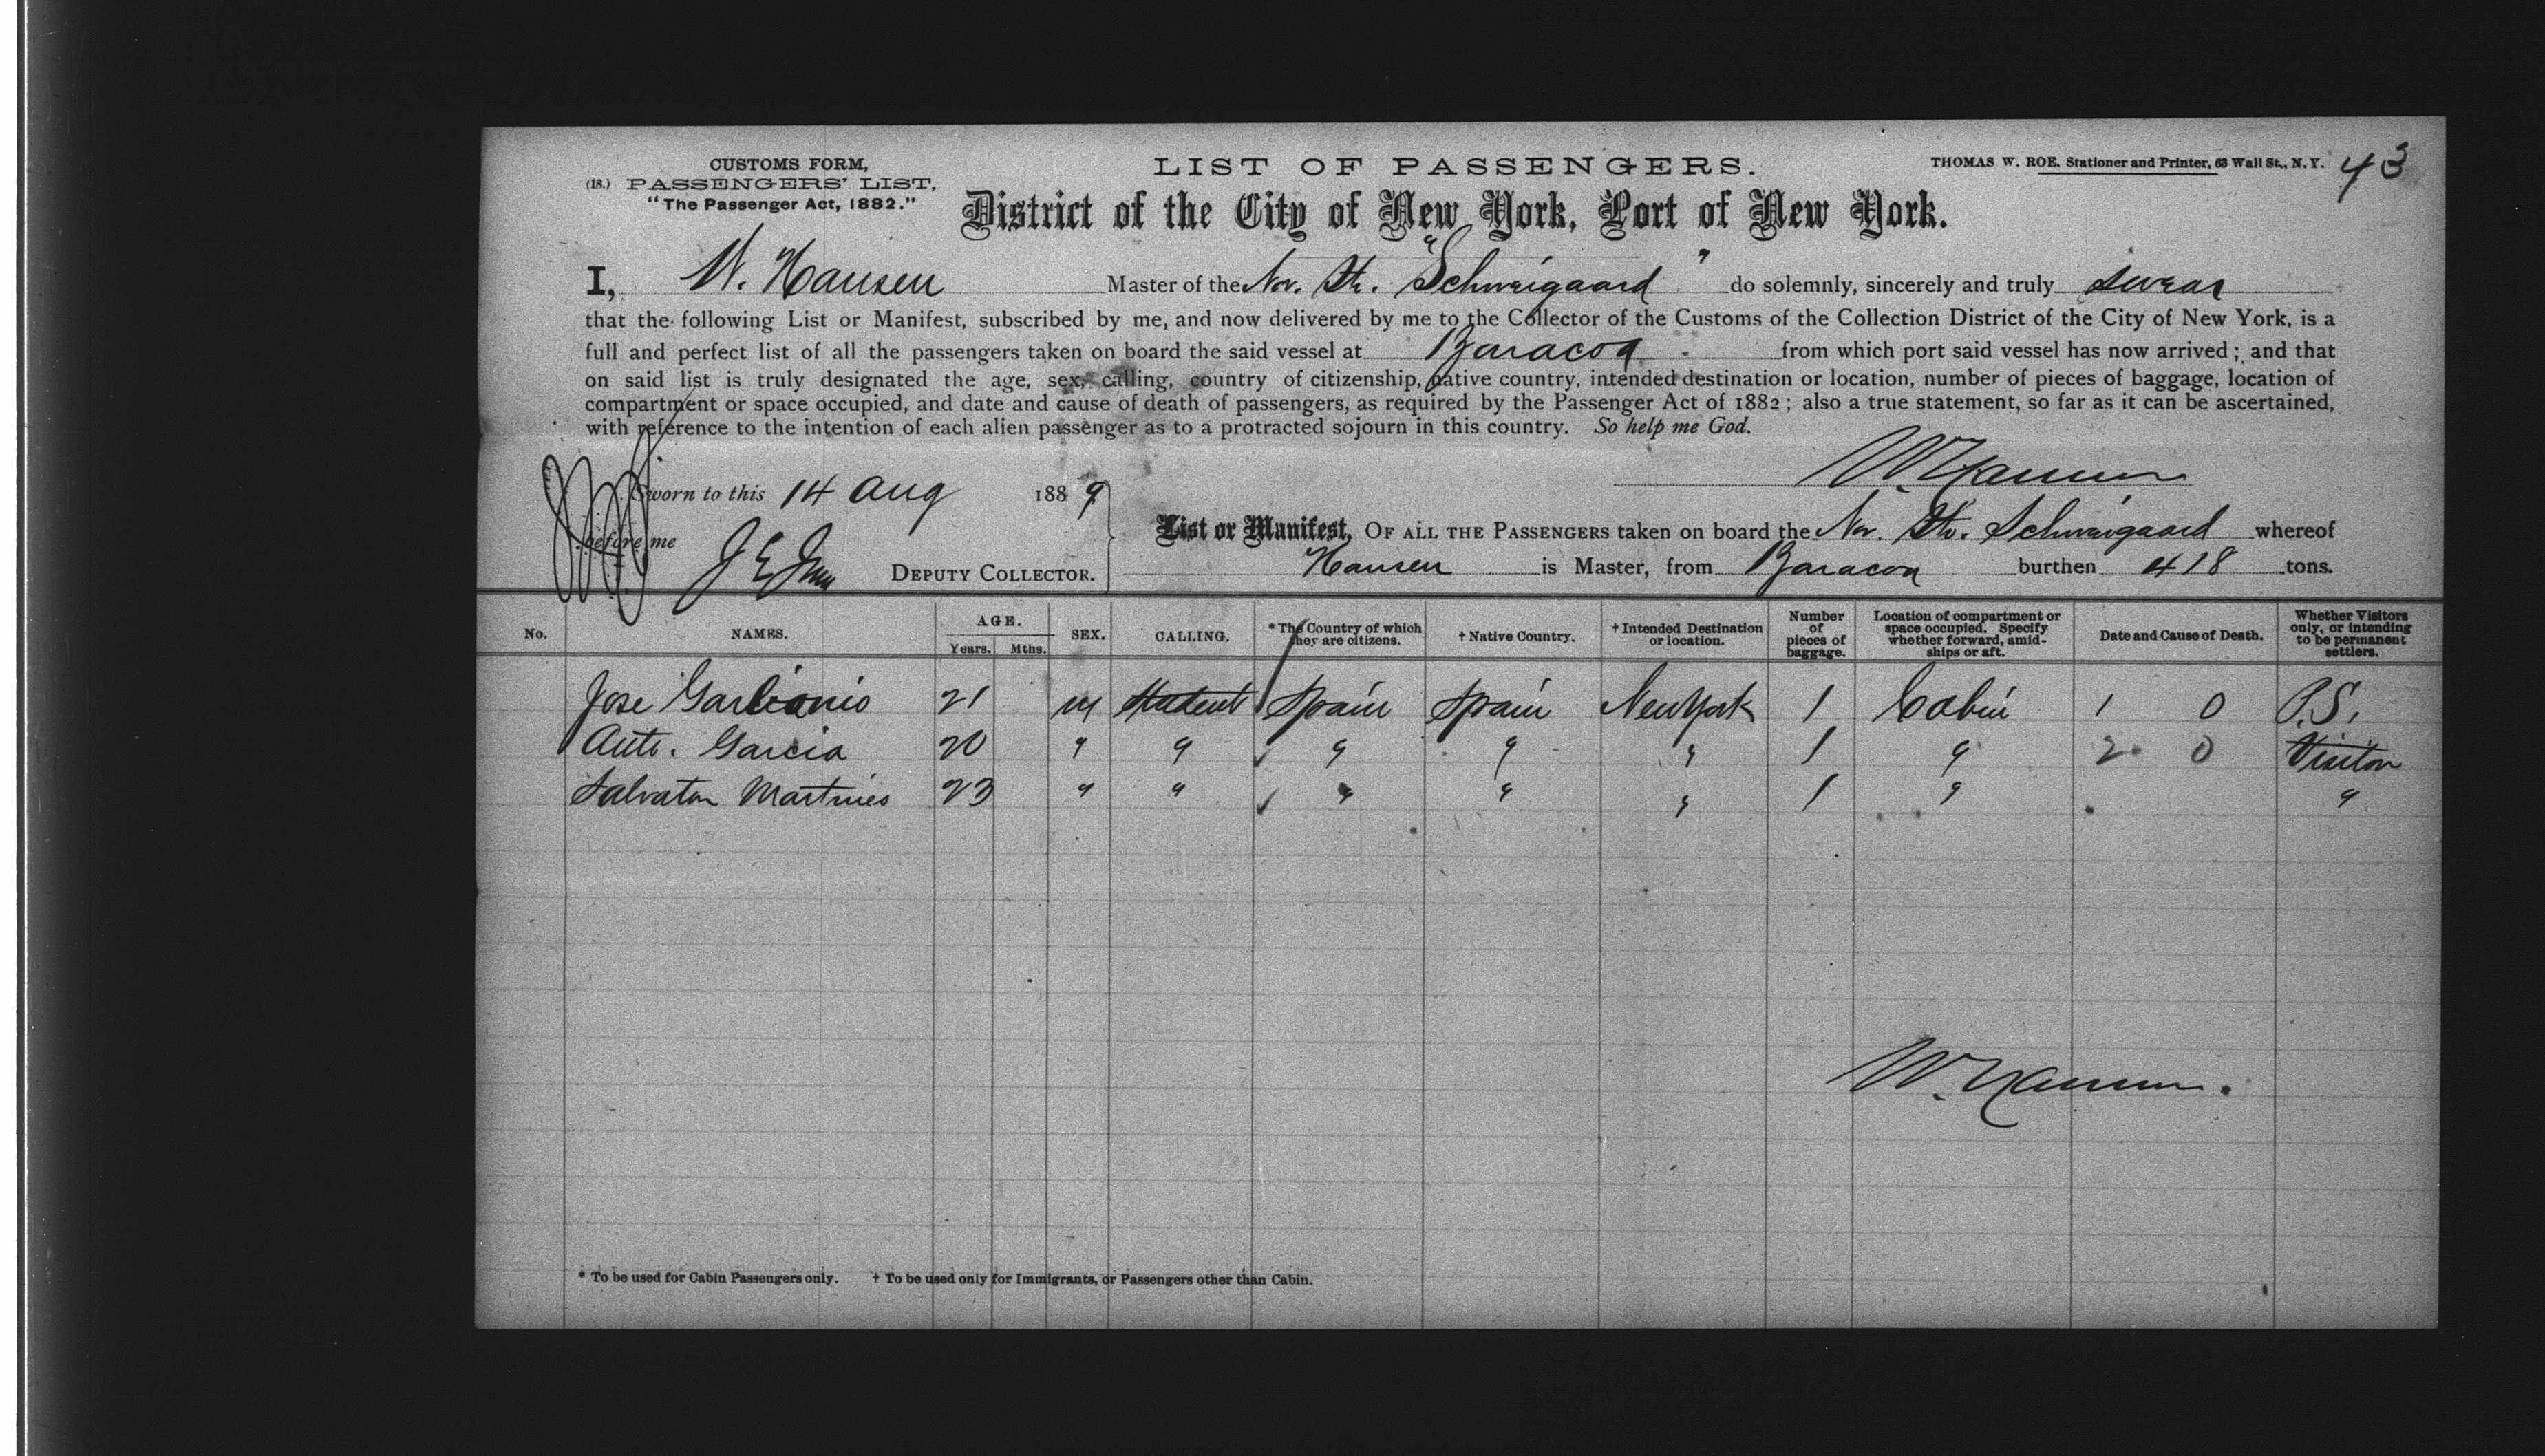 CUSTOMS FORM,
(18.) PASSENGERS' LIST,
"The Passenger Act, 1882."
LIST OF PASSENGERS.
THOMAS W. ROE, Stationer and Printer, 63 Wall St., N.Y.
43
District of the City of New York, Port of New York.
I, W. Hansen Master of the Nor. Str. "Schweigaard" do solemnly, sincerely and truly swear
that the following List or Manifest, subscribed by me, and now delivered by me to the Collector of the Customs of the Collection District of the City of New York, is a
full and perfect list of all the passengers taken on board the said vessel at Baracoa from which port said vessel has now arrived; and that
on said list is truly designated the age, sex, calling, country of citizenship, native country, intended destination or location, number of pieces of baggage, location of
compartment or space occupied, and date and cause of death of passengers, as required by the Passenger Act of 1882; also a true statement, so far as it can be ascertained,
with reference to the intention of each alien passenger as to a protracted sojourn in this country. So help me God.
W. Hansen
Sworn to this 14 Aug 1889
before me
DEPUTY COLLECTOR.
List or Manifest, OF ALL THE PASSENGERS taken on board the Nor. Str. Schweigaard whereof
Hansen is Master, from Baracoa burthen 418 tons.
No. NAMES. AGE. Years. Mths. SEX. CALLING. *The Country of which they are citizens. †Native Country. †Intended Destination or location. Number of pieces of baggage. Location of compartment or space occupied. Specify whether forward, amidships or aft. Date and Cause of Death. Whether Visitors only, or intending to be permanent settlers.
Jose 21 M Student Spain Spain New York 1 Cabin 1 0 P.S.
Anto. Garcia 20 " " " " " 1 " 2 0 Visitor
Salvator Martines 23 " " " " " 1 " "
W. Hansen.
* To be used for Cabin Passengers only. † To be used only for Immigrants, or Passengers other than Cabin.